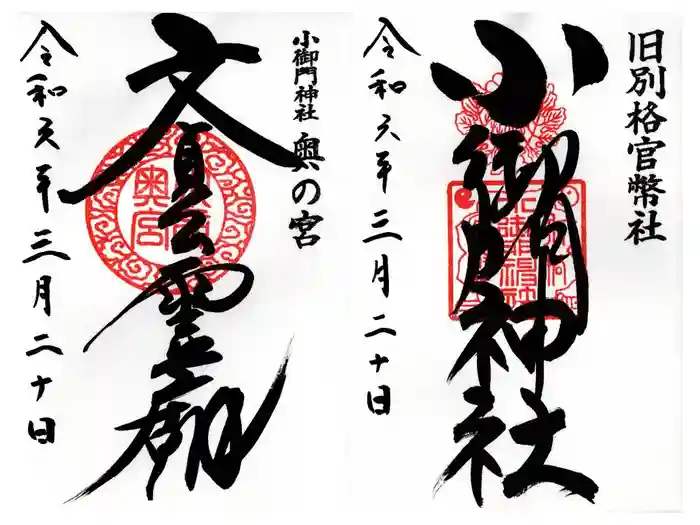 旧別格官幣社
小御門神社
令和六年三月二十日
小御門神社 奥の宮
文貞公霊廟
令和六年三月二十日
奥宮